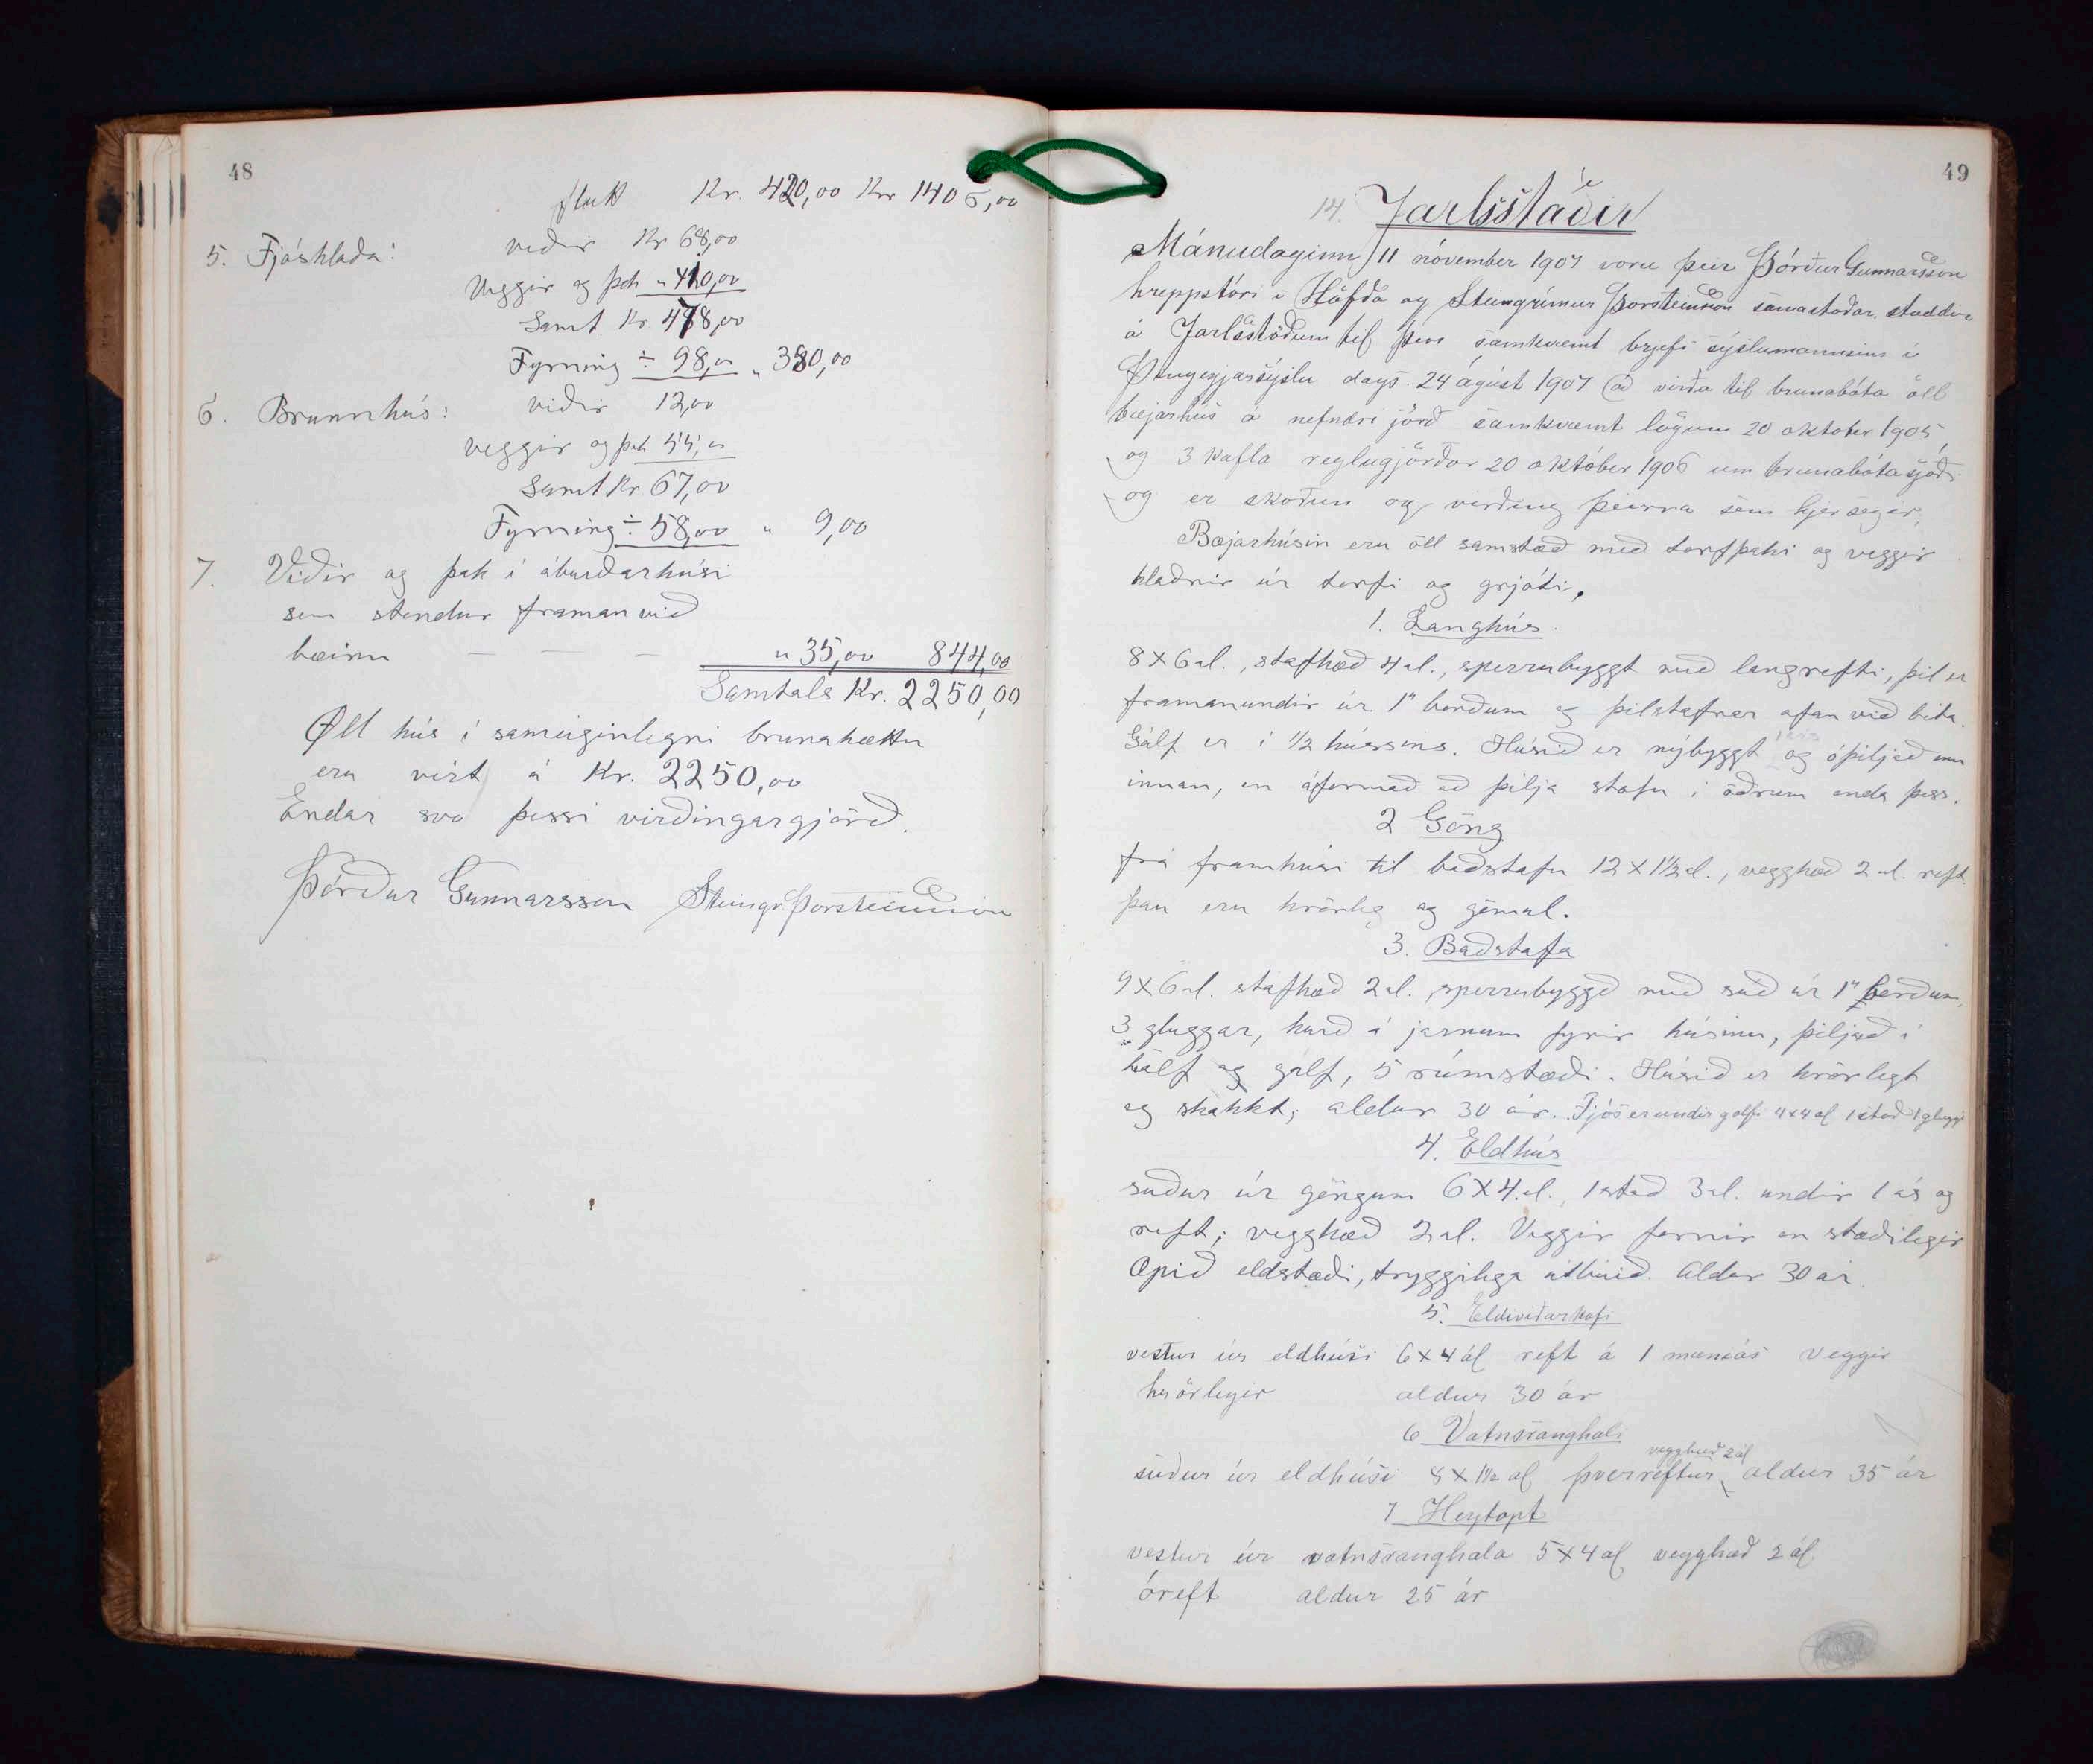 48
flutt Kr. 420,00 Kr 1406,00
5. Fjóshlaða: viðir Kr 68,00
Veggir og þak " 410,00
Samt. Kr. 478,00
Fyrning ÷ 98,00 " 380,00
6. Brunnhús: viðir 12,00
veggir og þak 55,00
Samt Kr 67,00
Fyrning ÷ 58,00 " 9,00
7. Viðir og þak í áburðarhúsi
sem stendur framan við
bæinn — — — " 35,00 844,00
Samtals Kr. 2250,00
Öll hús í sameiginlegri brunahættu
eru virt á Kr. 2250,00
Endar svo þessi virðingargjörð.
Þórður Gunnarsson Steingr. Þorsteinsson
49
14. Jarlsstaðir
Mánudaginn 11 nóvember 1907 voru þeir Þórður Gunnarsson
hreppstóri í Höfða og Steingrímur Þorsteinsson samastaðar staddir
á Jarlsstöðum til þess samkvæmt brjefi sýslumannsins í
Þingeyjarsýslu dags. 24 ágúst 1907 að virða til brunabóta öll
bæjarhús á nefndri jörð samkvæmt lögum 20 oktober 1905,
og 3 kafla reglugjörðar 20 október 1906 um brunabótasjóði
og er skoðun og virðing þeirra sem hjer segir,
Bæjarhúsin eru öll samstæð með torfþaki og veggir
hlaðnir úr torfi og grjóti.
1. Langhús.
8 X 6 al., stafhæð 4 al., sperrubyggt með langrefti, þil er
framanundir úr 1" borðum og þilstafnar ofan við bita.
Gólf er í 1/2 hússins. Húsið er nýbyggt og óþiljað um
innan, en áformað að þilja stofu í öðrum enda þess.
2 Göng
frá framhúsi til baðstofu 12 X 1 1/2 al., vegghæð 2 al. reft.
Þau eru hrörleg og gömul.
3. Baðstofa
9 X 6 al. stafhæð 2 al., sperrubyggð með súð úr 1" borðum,
3 gluggar, hurð á járnum fyrir húsinu, þiljað í
hálf og gólf, 5 rúmstæði. Húsið er hrörlegt
og skakkt; aldur 30 ár. Fjós er undir golfi 4x4 al 1 stoð 1 gluggi
4. Eldhús
suður úr göngum 6 X 4 al., 1 stoð 3 al. undir 1 ás og
reft; vegghæð 2 al. Veggir fornir en stæðilegir
Opið eldstæði, tryggilega útbúið. Aldur 30 ár.
5. Eldiviðarkofi
vestur úr eldhúsi 6 x 4 ál reft á 1 mæniás veggir
hrörlegir aldur 30 ár
6 Vatnsranghali
suður úr eldhúsi 8 x 1 1/2 al þverreftur vegghæð 2 al aldur 35 ár
7 Heytopt
vestur úr vatnsranghala 5 x 4 al vegghæð 2 ál
óreft aldur 25 ár